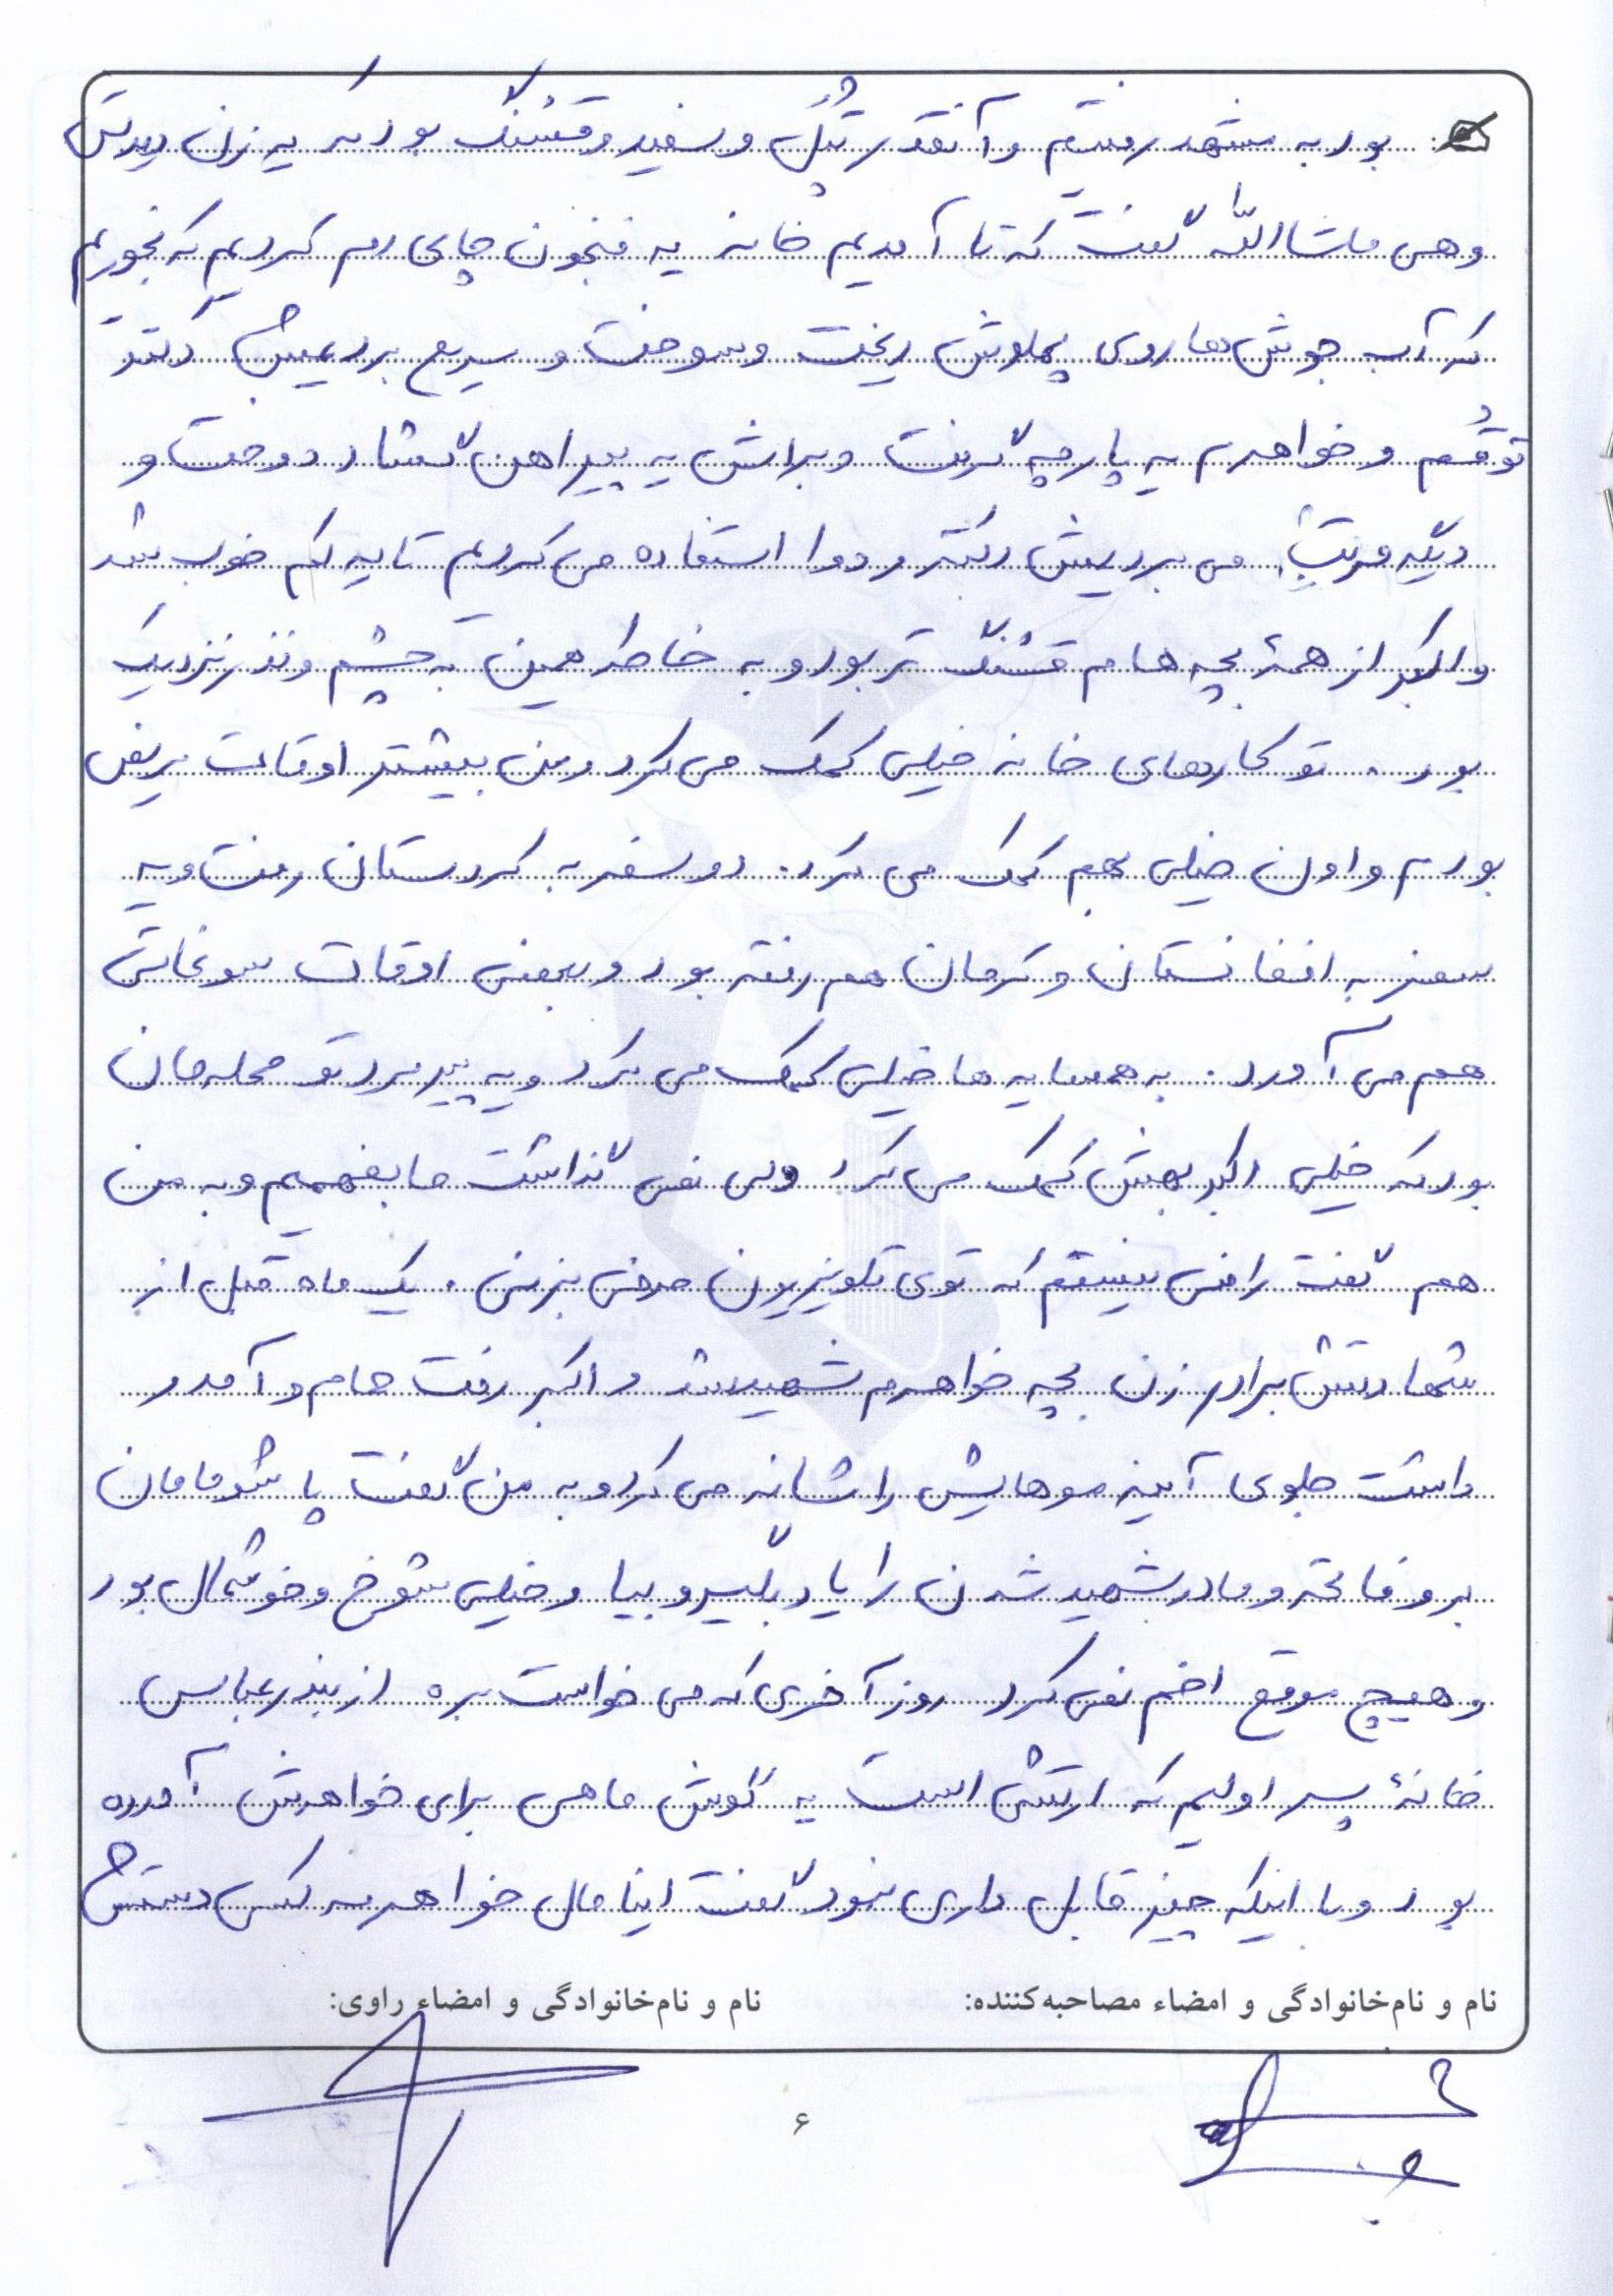 بود به مشهد رفتیم و آنقدر تپل و سفید و قشنگ بود که یه زن دیدتش
و هی ماشاالله گفت که تا آمدیم خانه یه فنجون چای دم کردیم که بخوریم
که آب جوش ها روی پهلوش ریخت و سوخت و سریع بردیمش دکتر
تو قم و خواهرم یه پارچه گرفت و براش یه پیراهن گشاد دوخت و
دیگه مرتب می بردیمش دکتر و دوا استفاده می کردیم تا یه کم خوب شد
و اکبر از همۀ بچه هام قشنگ تر بود و به خاطر همین به چشم و نذر نزدیک
بود . تو کارهای خانه خیلی کمک می کرد و من بیشتر اوقات مریض
بودم و اون خیلی بهم کمک می کرد. دو سفر به کردستان رفت و یه
سفر به افغانستان و کرمان هم رفته بود و بعضی اوقات سوغاتی
هم می آورد . به همسایه ها خیلی کمک می کرد و یه پیرمرد تو محله مان
بود که خیلی اکبر بهش کمک می کرد ولی نمی گذاشت ما بفهمیم و به من
هم گفت راضی نیستم که توی تلویزیون حرف بزنی . یک ماه قبل از
شهادتش برادر زن بچه خواهرم شهید شد و اکبر رفت حمام و آمد و
داشت جلوی آینه موهایش را شانه می کرد و به من گفت پاشو مامان
برو فاتحه و مادر شهید شدن را یاد بگیر و بیا و خیلی شوخ و خوشحال بود
و هیچ موقع اخم نمی کرد روز آخری که می خواست بره از بندرعباس
خانۀ پسر اولیم که ارتشی است یه گوش ماهی برای خواهرش آورده
بود و با اینکه چیز قابل داری نبود گفت اینا مال خواهرمه کسی دستش
نام و نام‌خانوادگی و امضاء مصاحبه‌کننده: نام و نام‌خانوادگی و امضاء راوی:
۶